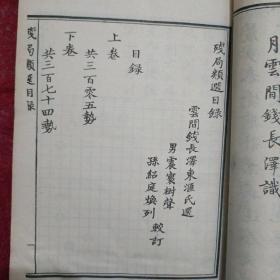 月雲間錢長澤識
殘局類選目錄
雲間錢長澤東滙氏選
男震寰树聲
孫紹庭煥列 較訂
目錄
上卷
共三百零五勢
下卷
共三百七十四勢
殘局類選目錄
一